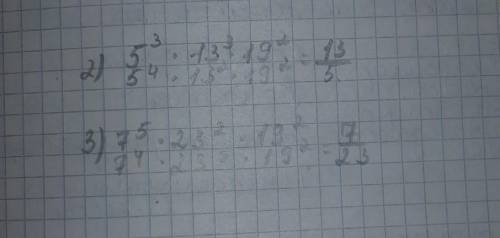 2) 5³ · 13³ · 19² / 5⁴ · 13² · 19² = 13/5
3) 7⁵ · 23² · 19² / 7⁴ · 23³ · 19² = 7/23